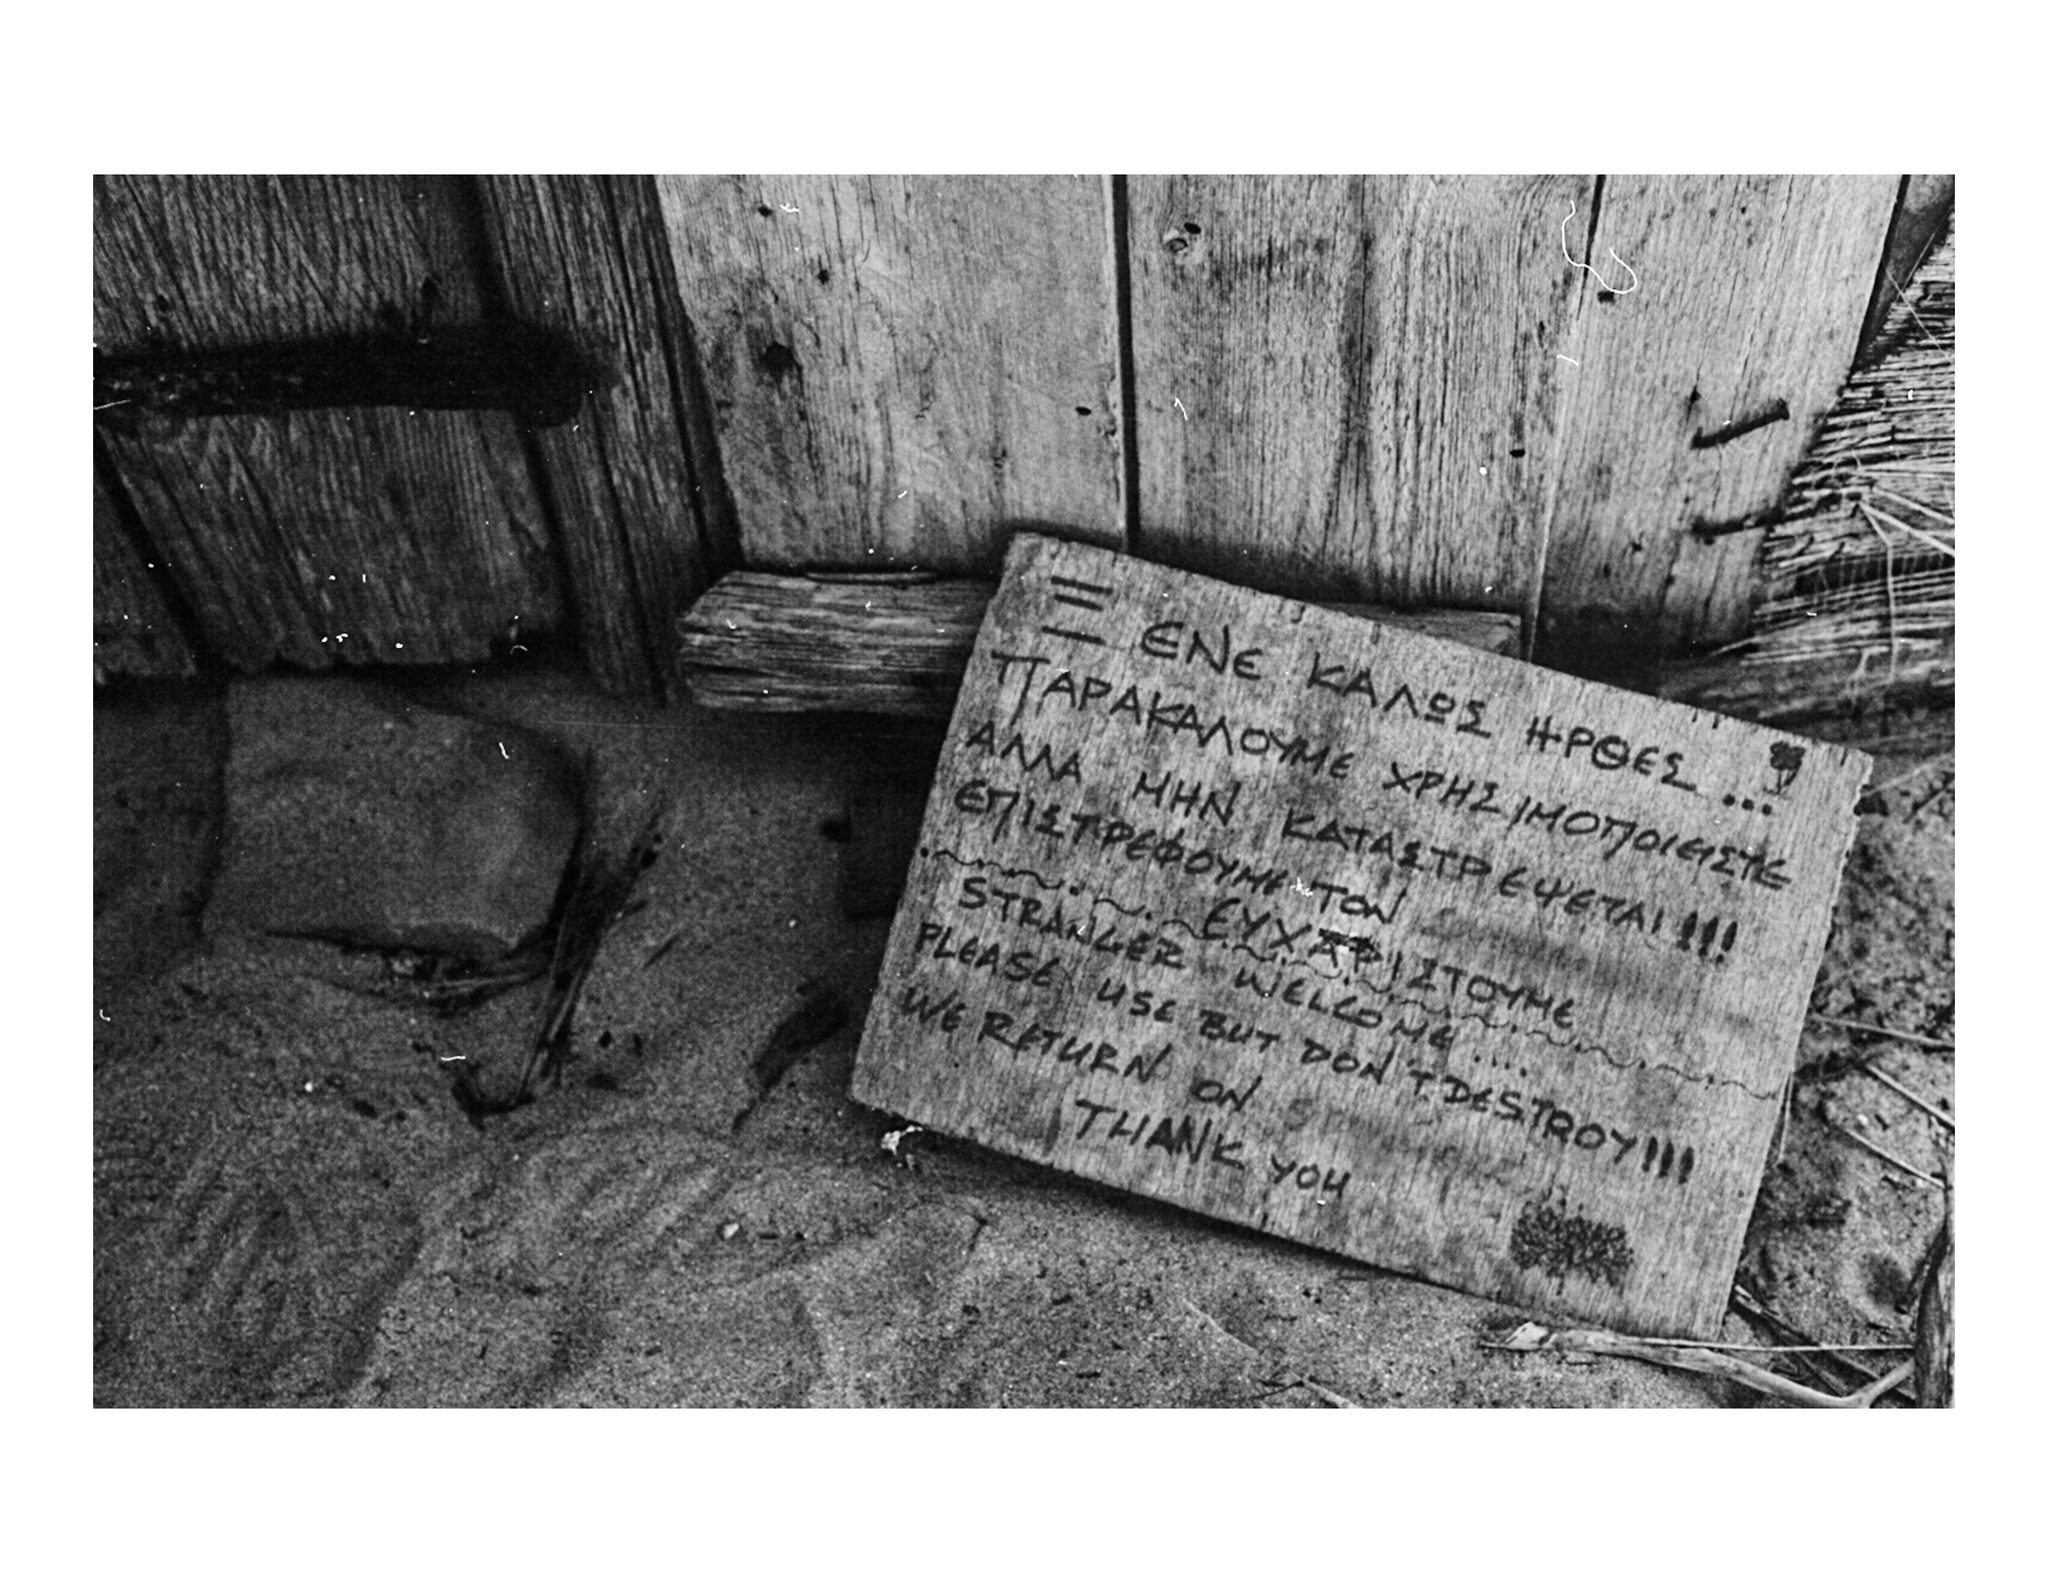 ΞΕΝΕ ΚΑΛΩΣ ΗΡΘΕΣ ...
ΠΑΡΑΚΑΛΟΥΜΕ ΧΡΗΣΙΜΟΠΟΙΕΙΣΤΕ
ΑΛΛΑ ΜΗΝ ΚΑΤΑΣΤΡΕΨΕΤΑΙ!!!
ΕΠΙΣΤΡΕΦΟΥΜΕ ΤΟΝ
ΕΥΧΑΡΙΣΤΟΥΜΕ
STRANGER WELCOME ....
PLEASE USE BUT DON'T DESTROY!!!
WE RETURN ON
THANK YOU